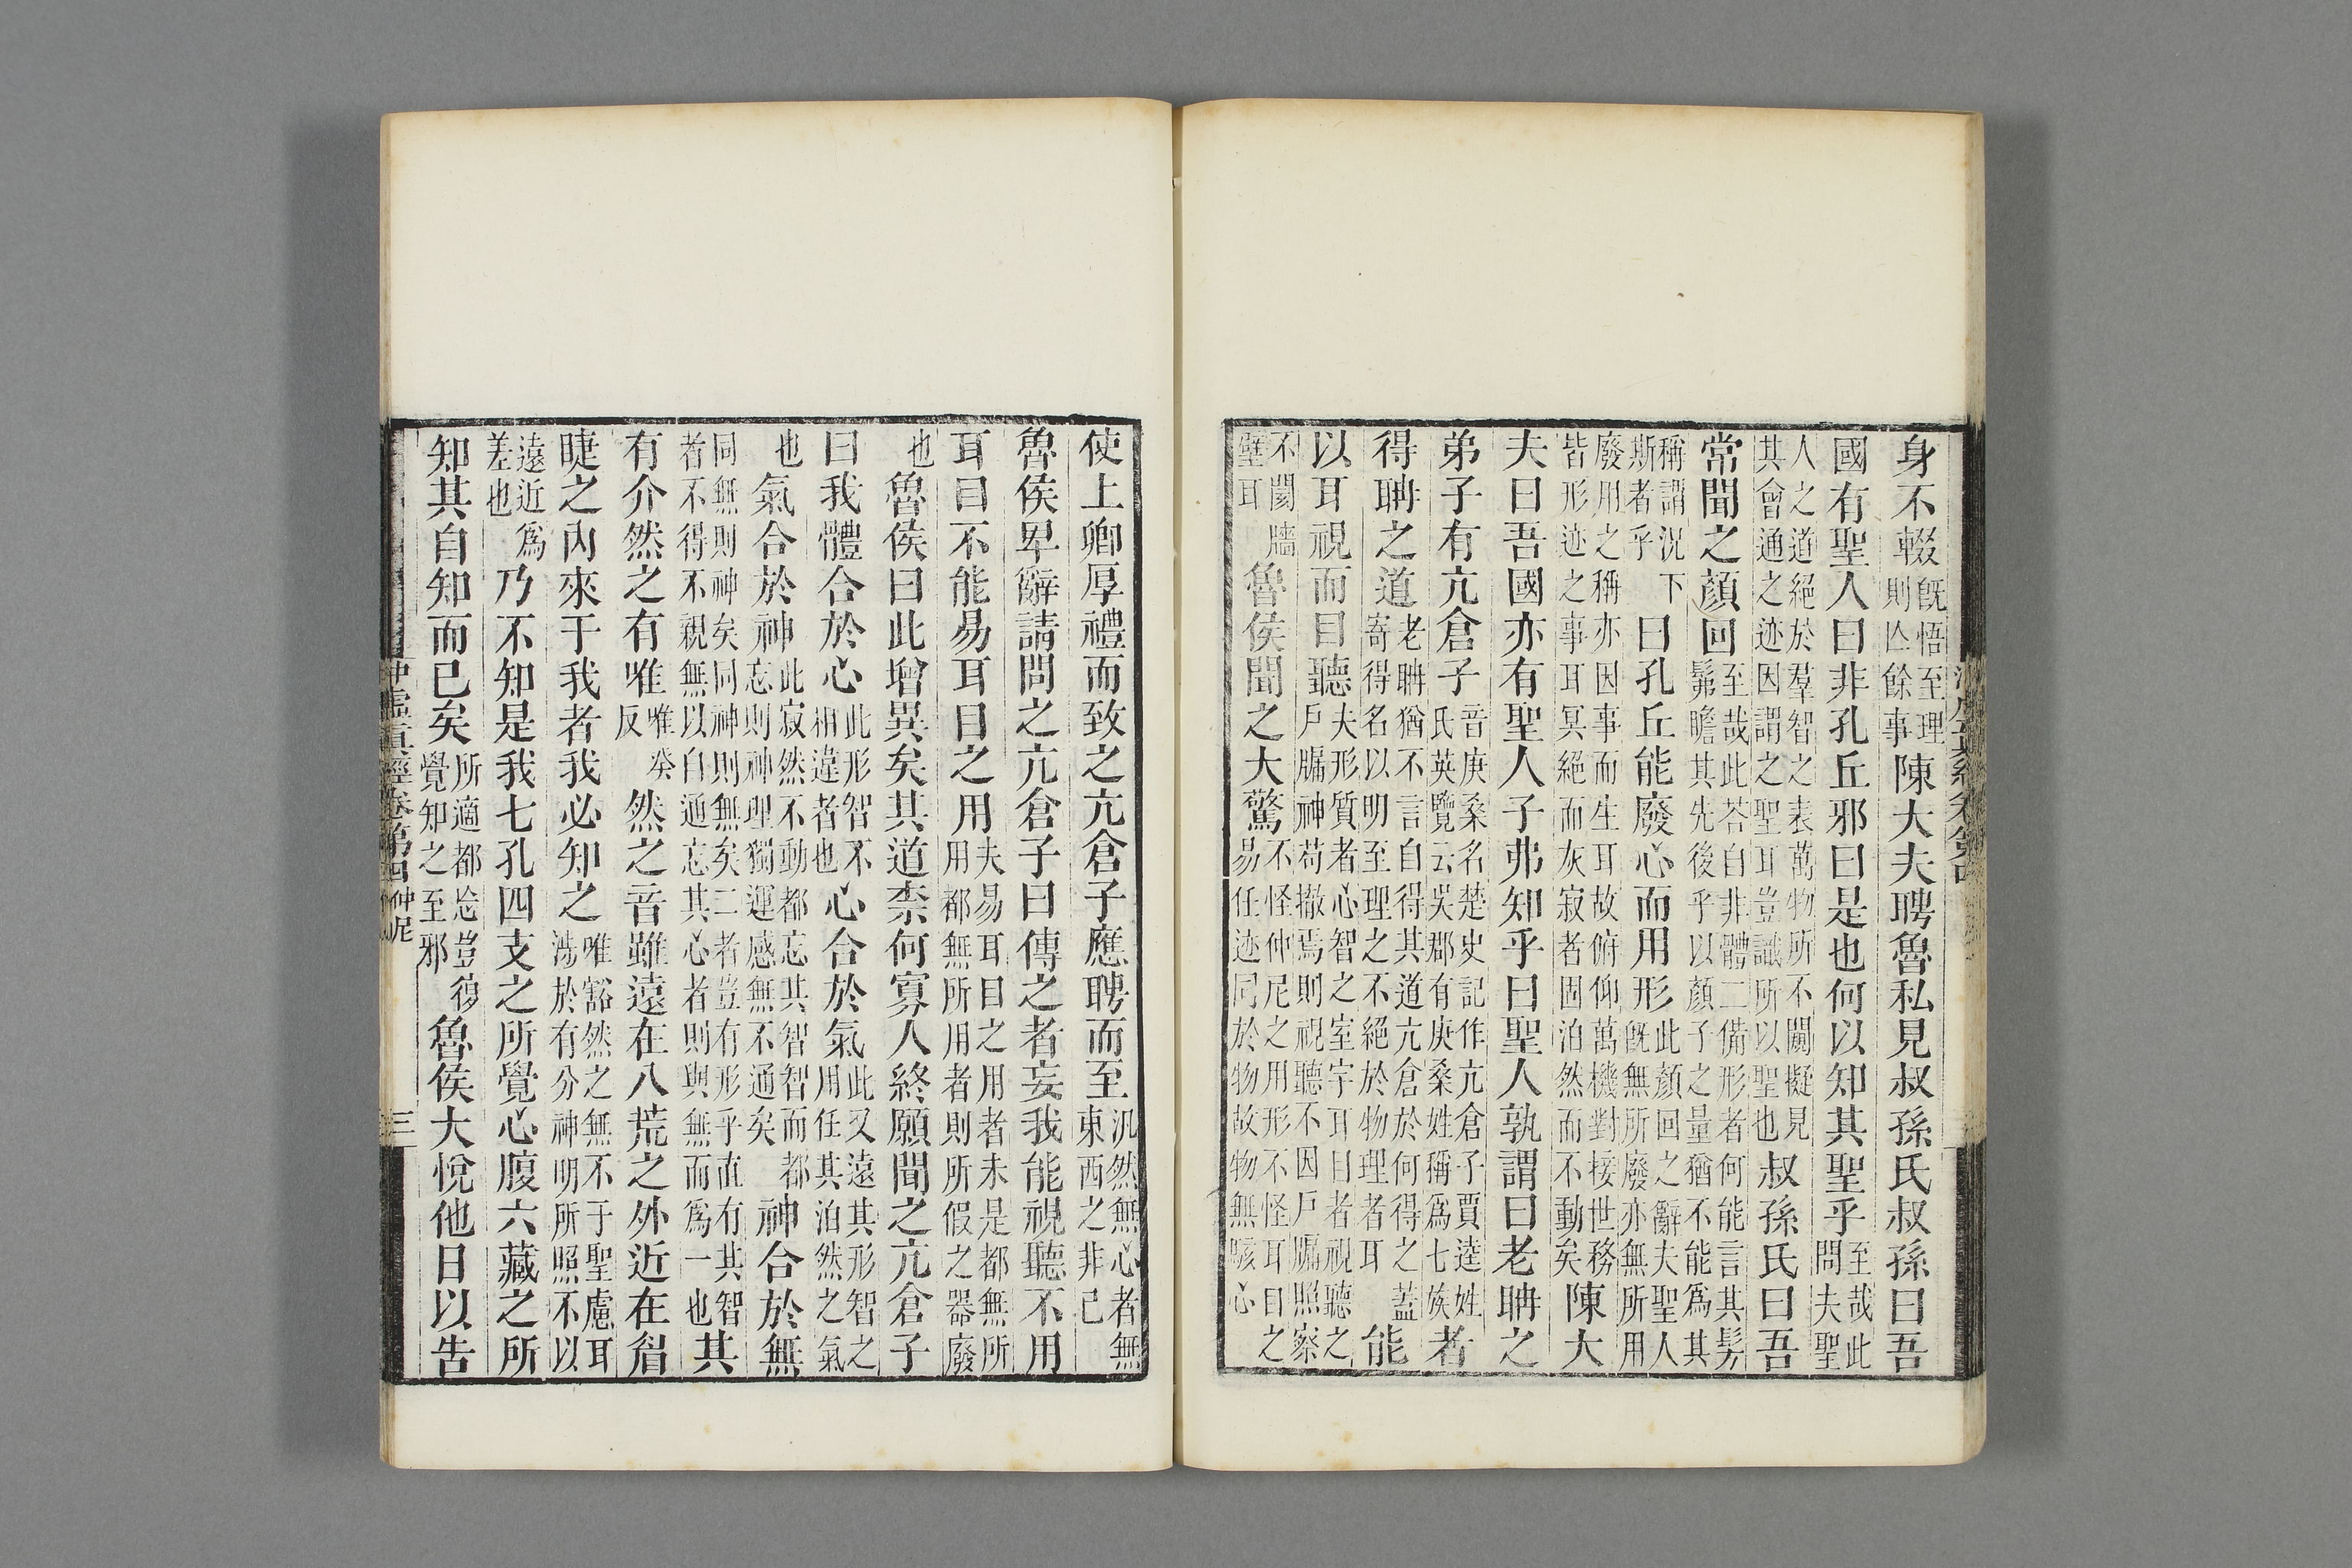 身不輟既悟至理則亾餘事陳大夫聘魯私見叔孫氏叔孫曰吾
國有聖人曰非孔丘邪曰是也何以知其聖乎至哉此問夫聖
人之道絕於羣智之表萬物所不闚擬見其會通之迹因謂之聖耳豈識所以聖也叔孫氏曰吾
常聞之顏回至哉此荅自非體二備形者何能言其髣髴瞻其先後乎以顏子之量猶不能爲其
稱謂況下斯者乎曰孔丘能廢心而用形此顏回之辭夫聖人既無所廢亦無所用
廢用之稱亦因事而生耳故俯仰萬機對接世務皆形迹之事耳冥絕而灰寂者固泊然而不動矣陳大
夫曰吾國亦有聖人子弗知乎曰聖人孰謂曰老聃之
弟子有亢倉子音庚桑名楚史記作亢倉子賈逵姓氏英覽云吳郡有庚桑姓稱爲七族者
得聃之道老聃猶不言自得其道亢倉於何得之蓋寄得名以明至理之不絕於物理者耳能
以耳視而目聽夫形質者心智之室宇耳目者視聽之戶牖神苟撤焉則視聽不因戶牖照察
不閡牆壁耳魯侯聞之大驚不怪仲尼之用形不怪耳目之易任迹同於物故物無駭心
使上卿厚禮而致之亢倉子應聘而至汎然無心者無東西之非己
魯侯卑辭請問之亢倉子曰傳之者妄我能視聽不用
耳目不能易耳目之用夫易耳目之用者未是都無所用都無所用者則所假之器廢
也魯侯曰此增異矣其道柰何寡人終願聞之亢倉子
曰我體合於心此形智不相違者也心合於氣此又遠其形智之用任其泊然之氣
也氣合於神此寂然不動都忘其智智而都忘則神理獨運感無不通矣神合於無
同無則神矣同神則無矣二者豈有形乎直有其智者不得不親無以自通忘其心者則與無而爲一也其
有介然之有唯唯癸反然之音雖遠在八荒之外近在眉
睫之內來干我者我必知之唯豁然之無不干聖慮耳涉於有分神明所照不以
遠近爲差也乃不知是我七孔四支之所覺心腹六藏之所
知其自知而已矣所適都忘豈復覺知之至邪魯侯大悅他日以告
卷第四 仲尼 三